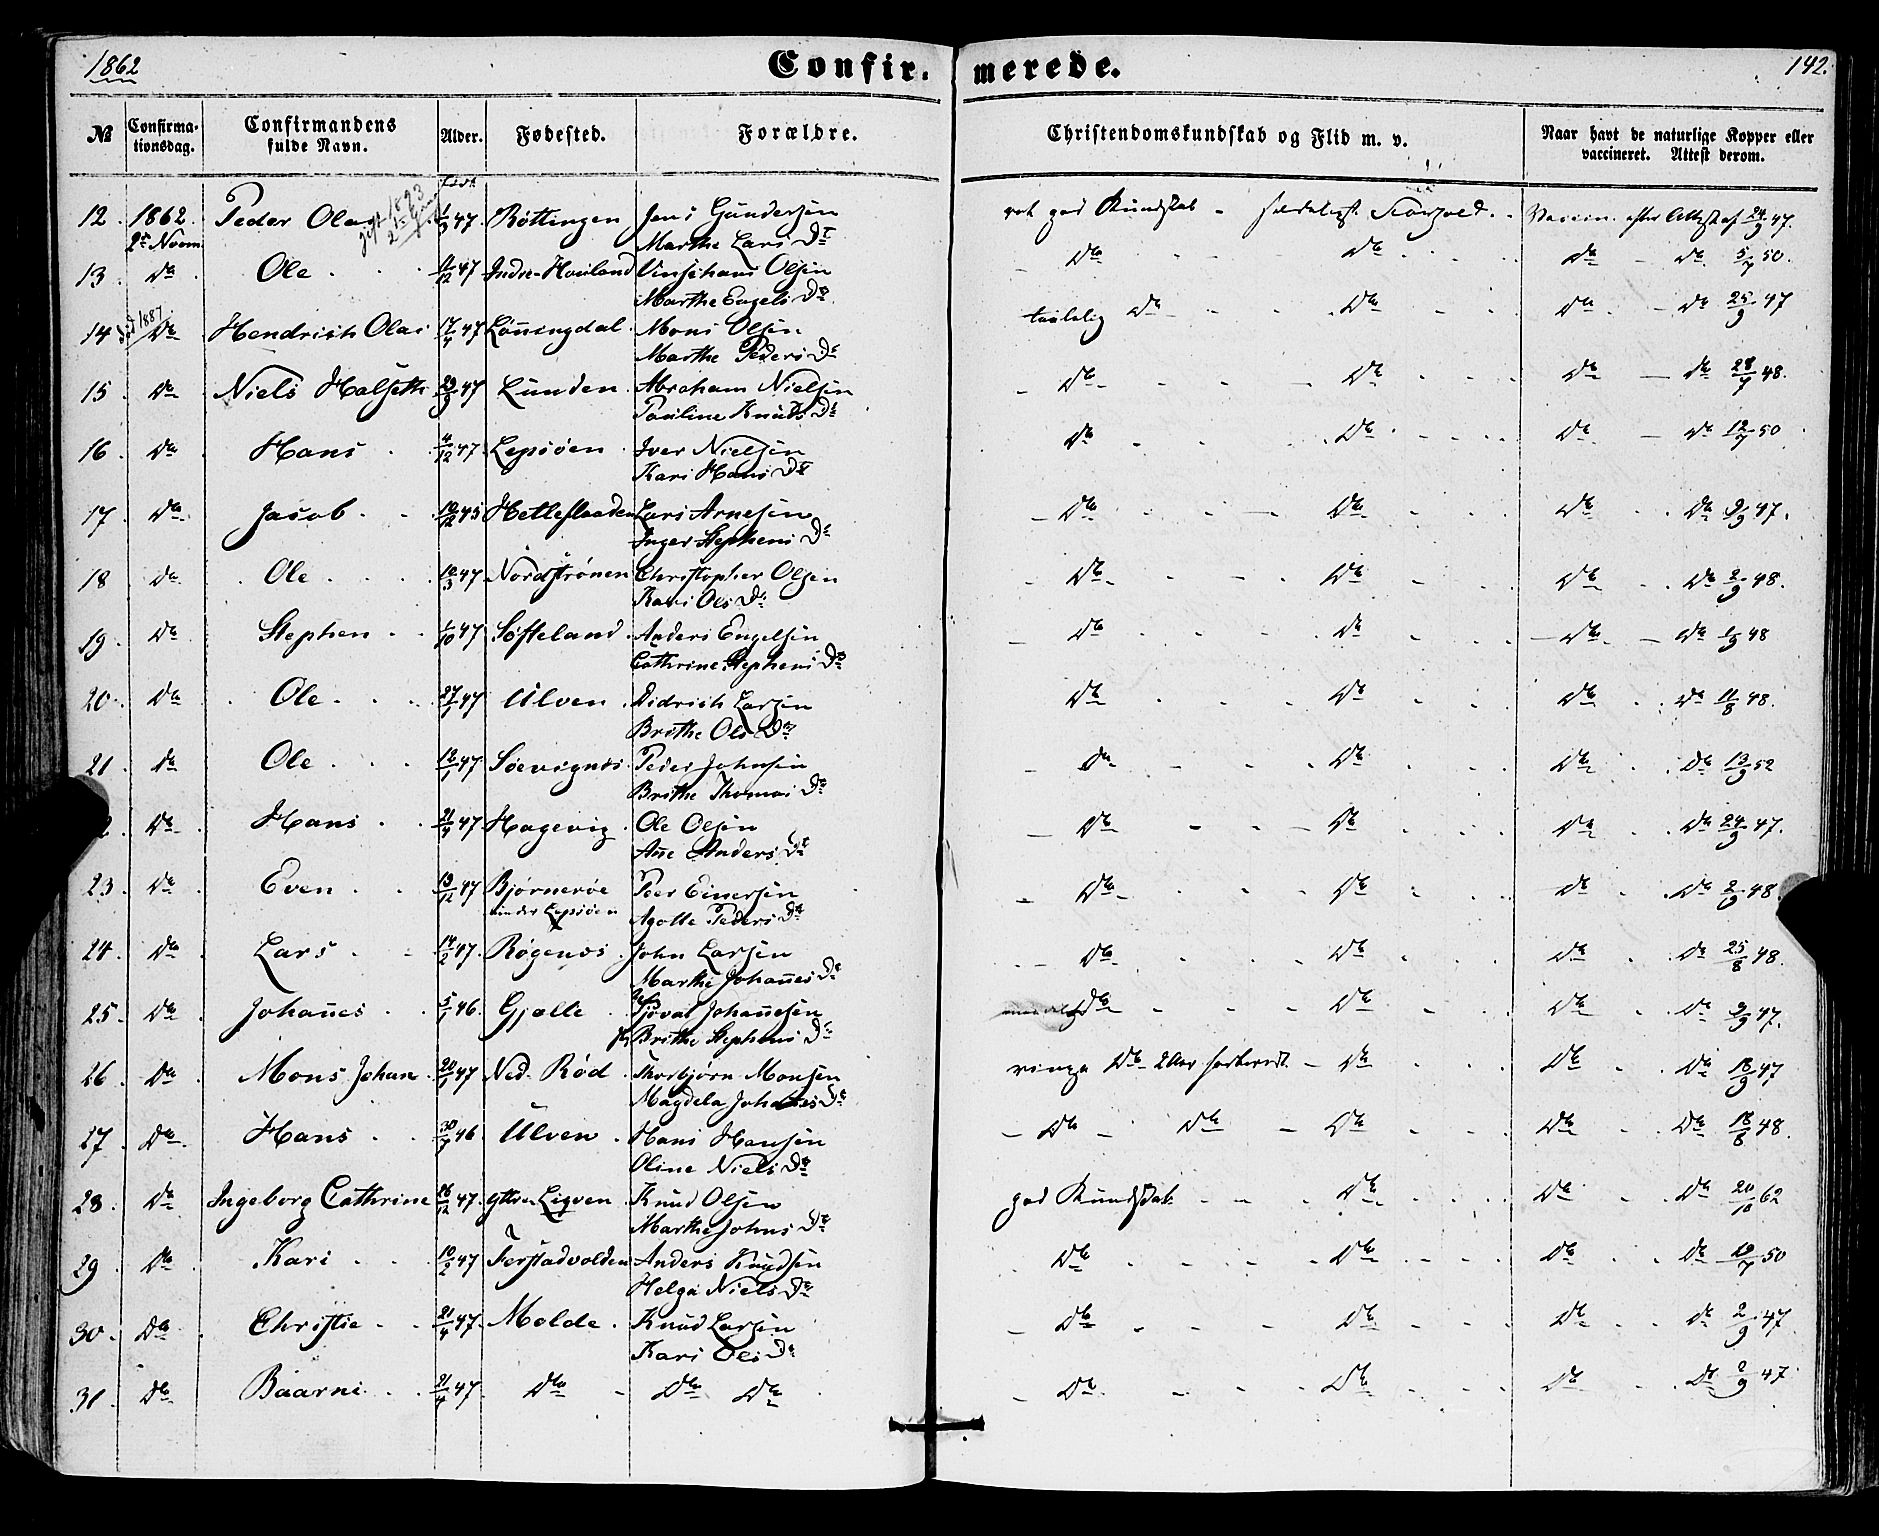 1862
Confirmerede.
142.
№ Confirmationsdag. Confirmandens fulde Navn. Alder. Fødested. Forældre. Christendomskundskab og Flid m. v. Naar havt de naturlige Kopper eller vaccineret. Attest derom.
12. 1862. 2den Novm Peder Olas gift 1893 2den Gang 47 Røttingen Jens Gundersen
Marthe Lars Dr
god Kundskab - sædeligt Forhold. Vaccin. efter Attest af 24/9 47.
13. Do Ole 11/12 47 Indre-Hauland Vinsents Olsen
Marthe Engels Dr
Do Do Do Do 5/7 50.
14 død 1887 Do Hendrich Olai 17/4 47 Lønningdal Mons Olsen
Marthe Peders Dr
taalelig Do Do Do Do 25/9 47
15 Do Niels Halseth 23/9 47 Lunden Abraham Nielsen
Pauline Knuds Dr
Do Do Do Do 28/7 48.
16 Do Hans 4/12 47 Lepsøen Iver Nielsen
Kari Hans Dr
Do Do Do Do 12/7 50
17 Do Jacob 10/12 45 Hetleflaaden Lars Arnesen
Inger Stephens Dr
Do Do Do Do 2/9 47.
18 Do Ole 10/3 47 Nordstrønen Christopher Olsen
Kari Ols Dr
Do Do Do Do 2/9 48.
19 Do Stephen 1/10 47 Søfteland Anders Engelsen
Cathrine Stephens Dr
Do Do Do Do 1/9 48
20 Do Ole 27/7 47 Ulven Didrich Larsen
Brithe Ols Dr
Do Do Do Do 11/8 48.
21 Do Ole 12/1 47 Søevignes Peder Johnsen
Brithe Thomas Dr
Do Do Do Do 13/9 52
2 Do Hans 21/4 47 Hagevig Ole Olsen
Ane Anders Dr
Do Do Do Do 24/9 47.
23 Do Even 13/12 47 Bjørnerøe under Lepsøen Peer Einersen
Agotte Peders Dr
Do Do Do Do 2/9 48
24. Do Lars 14/2 47. Røgenes John Larsen
Marthe Johanes Dr
Do Do Do Do 25/8 48.
25. Do Johanes 5/1 46. Gjølle Johanesen
Brithe Stephens Dr
Do Do Do Do 2/9 47.
26 Do Mons Johan 20/1 47 Ned. Rød Thorbjørn Monsen
Magdela Johanes Dr
ringe Do 2 Aar forberedt - Do Do Do 18/9 47
27 Do Hans 30/7 46 Ulven Hans Hansen
Oline Niels Dr
Do Do Do Do Do 18/8 48.
28. Do Ingeborg Cathrine 26/12 47. Yttre Liqven Knud Olsen
Marthe Johns Dr
god Kundskab Do Do Do 20/10 62
29 Do Kari 10/2 47 Ferstadvolden Anders Knudsen
Helga Niels Dr
Do Do Do Do 19/7 50
30. Do Christie 21/4 47. Molde Knud Larsen
Kari Ols Dr
Do Do Do Do 2/9 47
31 Do Baarni 21/4 47 Do Do Do
Do Do Do Do 2/9 47